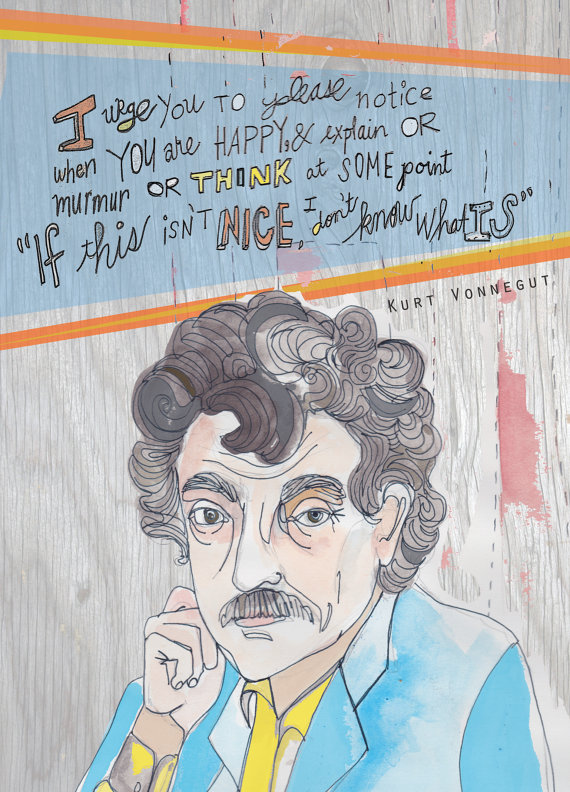 I urge YOU TO please notice
when YOU are HAPPY, & explain OR
murmur OR THINK at SOME point
"If this isn't NICE, I don't know what IS"
KURT VONNEGUT